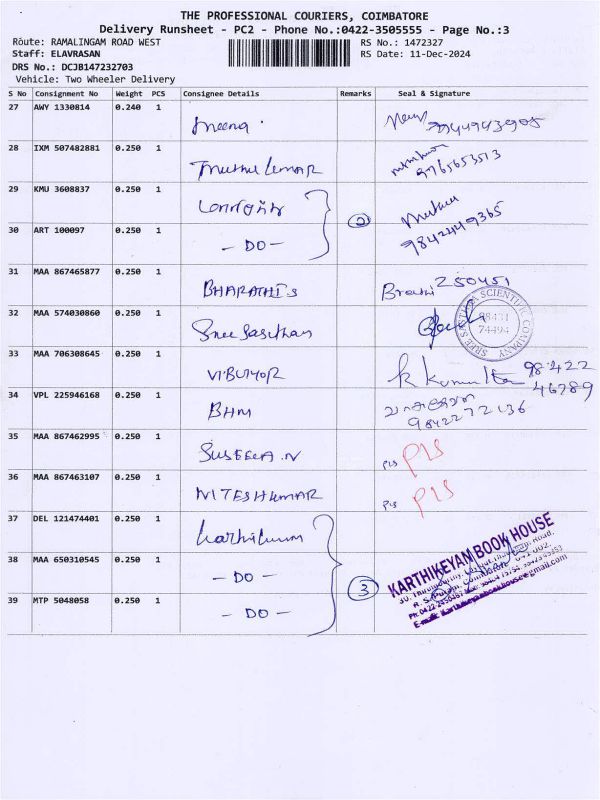 THE PROFESSIONAL COURIERS, COIMBATORE
Delivery Runsheet - PC2 - Phone No.:0422-3505555 - Page No.:3
Route: RAMALINGAM ROAD WEST
RS No.: 1472327
Staff: ELAVRASAN
RS Date: 11-Dec-2024
DRS No.: DCJB147232703
Vehicle: Two Wheeler Delivery
S No Consignment No Weight PCS Consignee Details Remarks Seal & Signature
27 AWY 1330814 0.240 1
meena
28 IXM 507482881 0.250 1
muthu kumar
9765653513
29 KMU 3608837 0.250 1
2
Muthu
30 ART 100097 0.250 1
- DO -
9842449365
31 MAA 867465877 0.250 1
BHARATHI S
250451
32 MAA 574030860 0.250 1
SREE SASTHA SCIENTIFIC COMPANY
98431
74494
Sree Sasthaa
33 MAA 706308645 0.250 1
VIBUYOR
98422
46789
34 VPL 225946168 0.250 1
BHM
9842272136
35 MAA 867462995 0.250 1
SUSEELA .N
PLS PLS
36 MAA 867463107 0.250 1
NITESHKUMAR
PLS PLS
37 DEL 121474401 0.250 1
KARTHIKEYAN BOOK HOUSE
38 MAA 650310545 0.250 1
- DO -
3
39 MTP 5048058 0.250 1
- DO -
E-mail: karthikeyanbookhouse@gmail.com